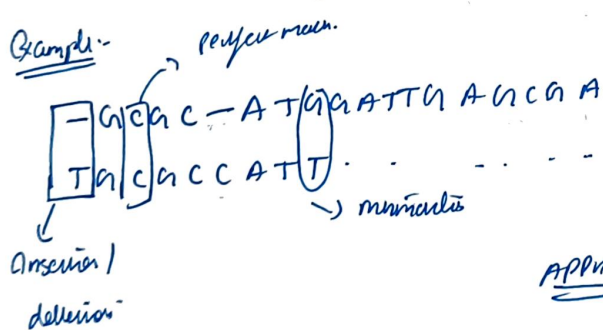 Example:-
perfect match.
- G C G C - A T G G A T T G A G C G A
T G C G C C A T T . . . . - -
mismatch
Insertion /
deletion
APPR